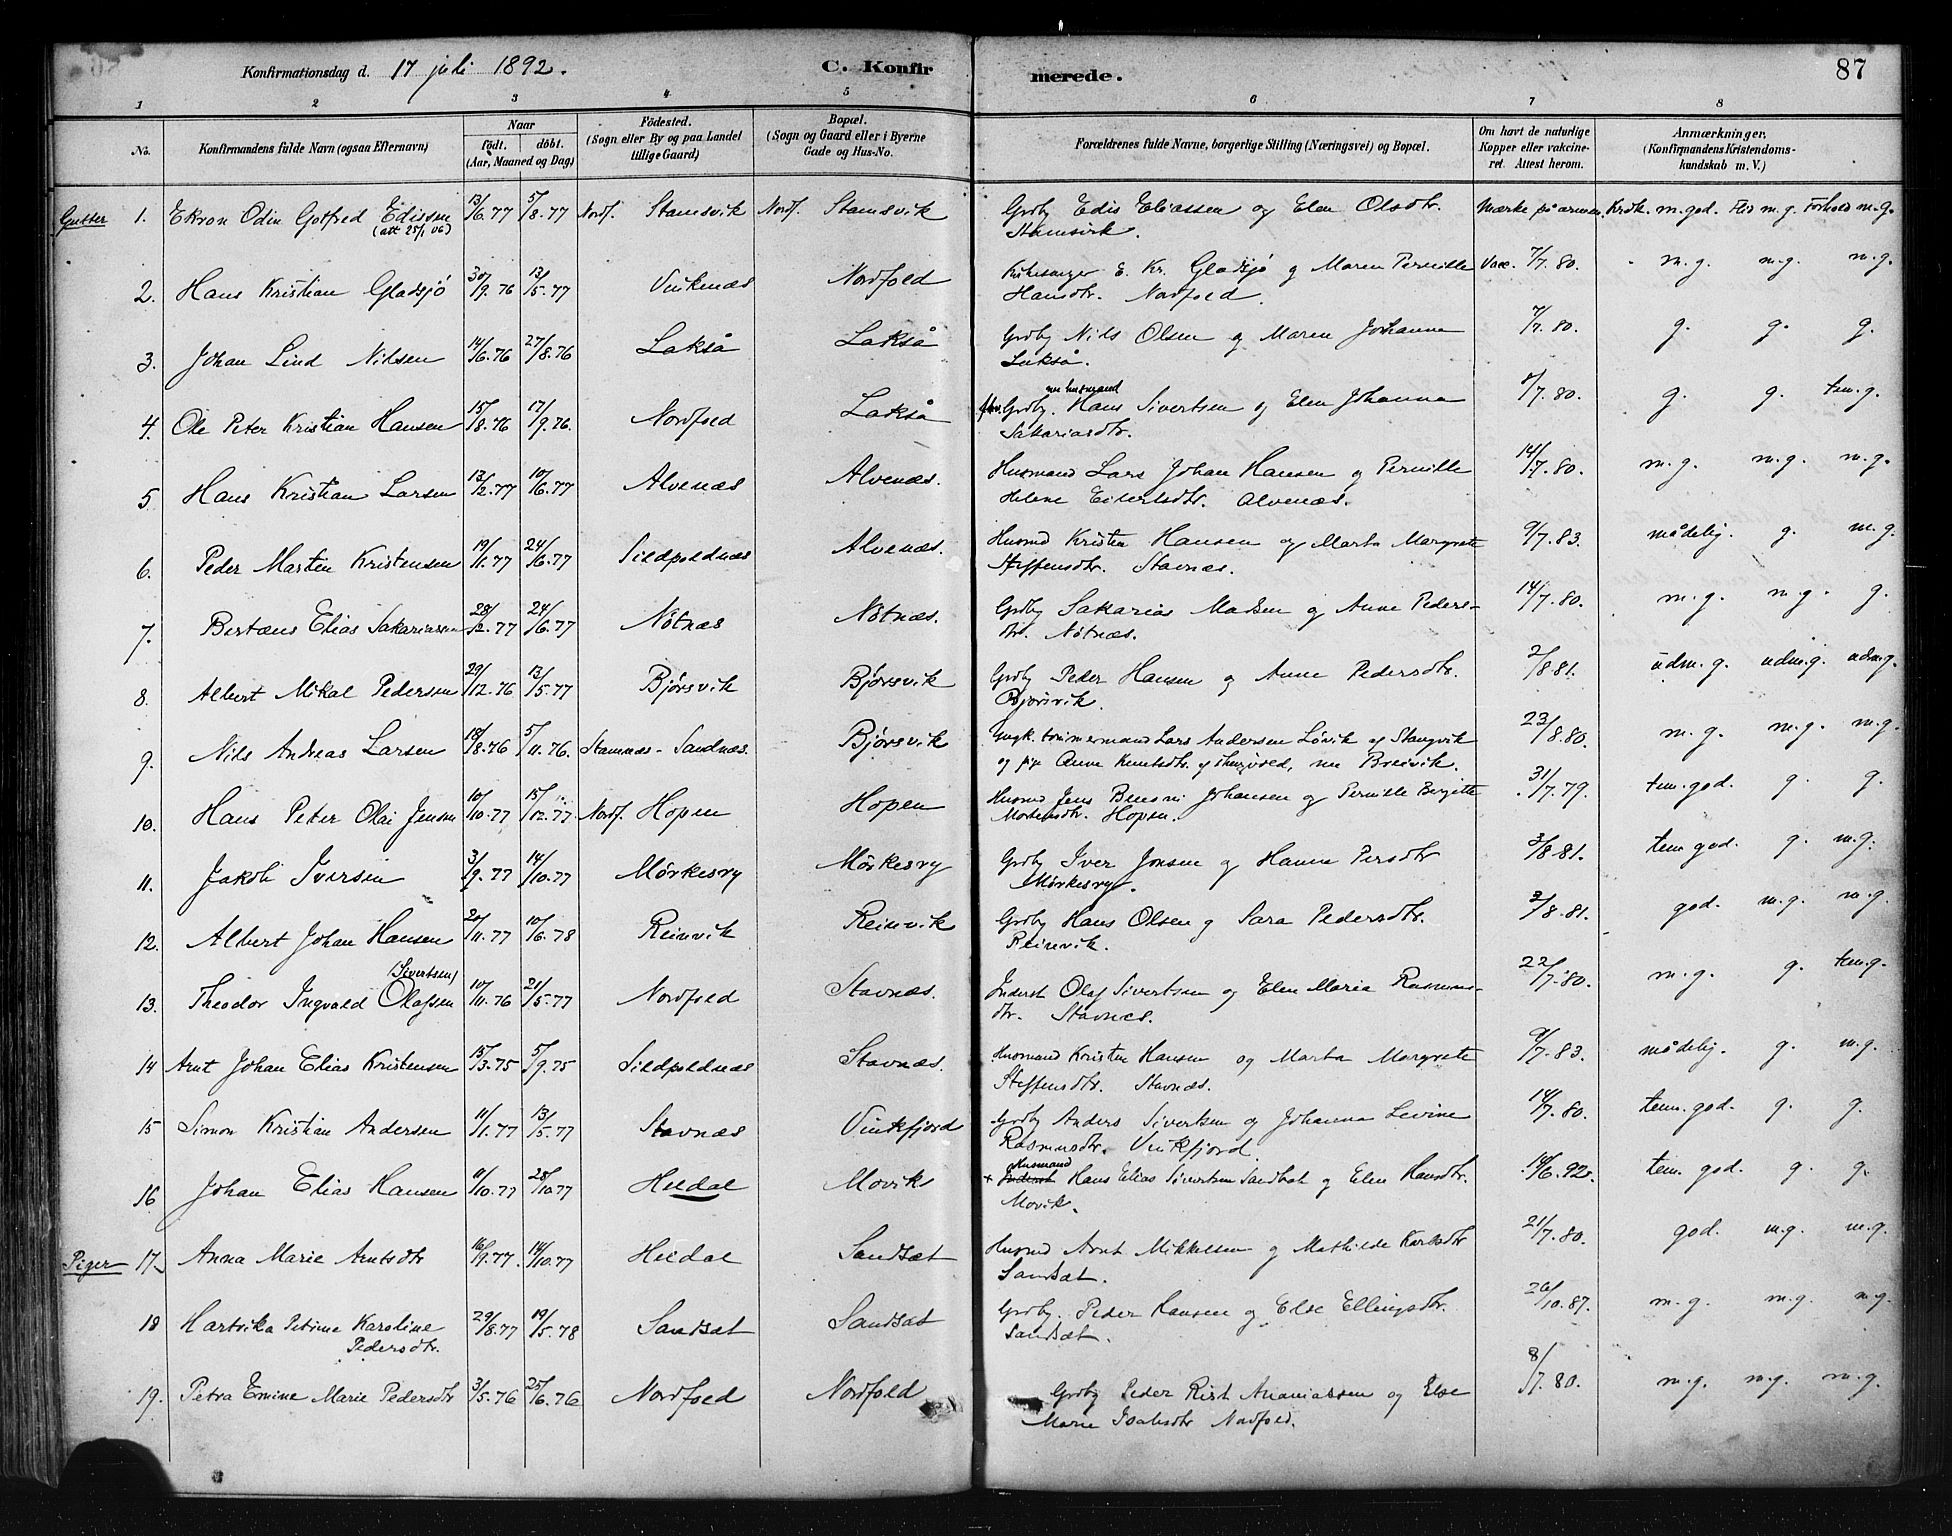 Konfirmationsdag d. 17 juli 1892. C. Konfirmerede. 87
1 2 3 4 5 6 7 8
No. Konfirmandens fulde Navn (ogsaa Efternavn) Naar födt. döbt. (Aar, Maaned og Dag) Födested. (Sogn eller By og paa Landet tillige Gaard) Bopæl. (Sogn og Gaard eller i Byerne Gade og Hus-No. Forældrenes fulde Navne, borgerlige Stilling (Næringsvei) og Bopæl. Om havt de naturlige Kopper eller vakcineret. Attest herom. Anmærkninger. (Konfirmandens Kristendomskundskab m. V.)
Gutter 1. Ekron Odin Gotfred Edissen 13/6.77 5/8.77 Nordf. Stamsvik Nordf. Stamsvik Grdby Edis Eliassen og Elen Olsdtr. Mærke på armen. Krdk. m. god. Flid m. g. Forhold m. g.
(att 25/1 06) Stamsvik.
2. Hans Kristian Gladsjö 30/9.76 13/5.77 Vinkenæs Nordfold Kirkesanger E. Kr. Gladsjö og Maren Pernille Vacc. 7/7.80. m. g. m. g. m. g.
Hansdtr. Nordfold.
3. Johan Lind Nilsen 14/6.76 27/8.76 Lakså Lakså Grdby Nils Olsen og Maren Johanna 7/7.80. g. g. g.
Lakså.
nu husmand
4. Ole Peter Kristian Hansen 15/8.76 17/9.76. Nordfold Lakså Grdby. Hans Sivertsen og Elen Johanna 8/7.80. g. g. tem. g.
Sakariasdtr.
5. Hans Kristian Larsen 13/2.77 10/6.77 Alvenæs Alvenæs. Husmand Lars Johan Hansen og Pernille 14/7.80. m. g. m. g. m. g.
Helene Eilertsdtr. Alvenæs.
6. Peder Martin Kristensen 19/1.77 24/6.77 Sildpoldnæs Alvenæs. Husmd Kristen Hansen og Marta Margrete 9/7.83. mådelig. g. m. g.
Steffensdtr. Stavnæs.
7. Bertæus Elias Sakariassen 28/2.77 24/6.77 Nötnæs Nötnæs. Grdby Sakarias Madsen og Anne Peders- 14/7.80. m. g. m. g. g.
dtr. Nötnæs.
8. Albert Mikal Pedersen 29/12.76 13/5.77 Bjørsvik Bjørsvik Grdby Peder Hansen og Anne Pedersdtr. 2/8 81. udm. g. udm. g. udm. g.
Bjørsvik.
9. Nils Andreas Larsen 18/8.76 5/11.76. Stamnæs - Sandnæs. Bjørsvik Ungk. tömmermand Lars Andersen Løvik af Stangvik 23/8.80. m. g. m. g. m. g.
og pige Anne Knutsdtr. nu Breivik.
10. Hans Peter Olai Jensen 10/10.77 15/12.77 Nordf. Hopen Hopen Husmd Jens Benoni Johansen og Pernille Birgitte 31/7.79. tem. god. g. g.
Mortensdtr. Hopen.
11. Jakob Iversen 3/9.77 14/10.77 Mørkesvy Mørkesvy Grdby Iver Jonsen og Hanna Persdtr 3/8 81. tem god. g. m. g.
Mørkesvy.
12. Albert Johan Hansen 20/11.77 10/6.78 Reinvik Reinvik Grdby Hans Olsen og Sara Pedersdtr. 2/8.81. god. m. g. m. g.
Reinvik.
(Sivertsen)
13. Theodor Ingvald Olafsen 10/11.76 21/5.77 Nordfold Stavnæs. Inderst Olaf Sivertsen og Elen Maria Rasmus- 22/7.80. m. g. g. tem. g.
dtr. Stavnes.
14 Arnt Johan Elias Kristensen 15/3.75 5/9.75 Sildpoldnæs Stavnæs. Husmand Kristen Hansen og Marta Margrete 9/7.83. mådelig. g. m. g.
Steffensdtr. Stavnæs.
15 Simon Kristian Andersen 11/1.77 13/5.77 Stavnæs Vinkfjord Grdby Anders Sivertsen og Johanna Levine 14/7.80. tem. god. g. g.
Rasmusdtr. Vinkfjord.
Husmand
16 Johan Elias Hansen 9/10.77 28/10.77 Heldal Movik + Inderst Hans Elias Sivertsen Sandbat og Elen Hansdtr. 14/6.92. tem. god. g. g.
Movik.
Piger 17. Anna Marie Arntsdtr 16/9.77. 14/10.77 Heldal Sandsæt Husmd Arnt Mikkelsen og Mathilde Karlsdtr 21/7.80. god. m. g. m. g.
Sandsæt.
18 Hartvika Petrine Karoline 29/8.77 19/5.78 Sandsæt Sandsæt Grdby. Peder Hansen og Else Ellingsdtr. 26/10.87. m. g. m. g. m. g.
Pedersdtr. Sandsæt.
19. Petra Emine Marie Pedersdtr 3/5.76 25/6.76 Nordfold Nordfold Grdby Peder Rist Ananiassen og Else 8/7.80. m. g. m. g. m. g.
Marie Isaksdtr Nordfold.